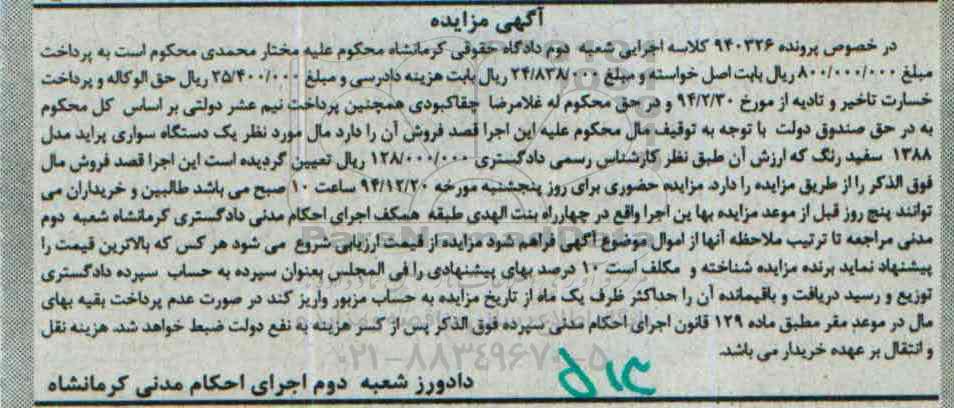 آگهی مزایده
در خصوص پرونده ۹۴۰۳۲۶ کلاسه اجرایی شعبه دوم دادگاه حقوقی کرمانشاه محکوم علیه مختار محمدی محکوم است به پرداخت
مبلغ ۸۰۰/۰۰۰/۰۰۰ ریال بابت اصل خواسته و مبلغ ۲۴/۸۳۸/۰۰۰ ریال بابت هزینه دادرسی و مبلغ ۲۵/۴۰۰/۰۰۰ ریال حق الوکاله و پرداخت
خسارت تاخیر و تادیه از مورخ ۹۴/۲/۳۰ و در حق محکوم له غلامرضا چقاکبودی همچنین پرداخت نیم عشر دولتی بر اساس کل محکوم
به در حق صندوق دولت با توجه به توقیف مال محکوم علیه این اجرا قصد فروش آن را دارد مال مورد نظر یک دستگاه سواری پراید مدل
۱۳۸۸ سفید رنگ که ارزش آن طبق نظر کارشناس رسمی دادگستری ۱۲۸/۰۰۰/۰۰۰ ریال تعیین گردیده است این اجرا قصد فروش مال
فوق الذکر را از طریق مزایده را دارد. مزایده حضوری برای روز پنجشنبه مورخه ۹۴/۱۲/۲۰ ساعت ۱۰ صبح می باشد طالبین و خریداران می
توانند پنج روز قبل از موعد مزایده بها ین اجرا واقع در چهارراه بنت الهدی طبقه همکف اجرای احکام مدنی دادگستری کرمانشاه شعبه دوم
مدنی مراجعه تا ترتیب ملاحظه آنها از اموال موضوع آگهی فراهم شود مزایده از قیمت ارزیابی شروع می شود هر کس که بالاترین قیمت را
پیشنهاد نماید برنده مزایده شناخته و مکلف است ۱۰ درصد بهای پیشنهادی را فی المجلس بعنوان سپرده به حساب سپرده دادگستری
توزیع و رسید دریافت و باقیمانده آن را حداکثر ظرف یک ماه از تاریخ مزایده به حساب مزبور واریز کند در صورت عدم پرداخت بقیه بهای
مال در موعد مقر مطبق ماده ۱۲۹ قانون اجرای احکام مدنی سپرده فوق الذکر پس از کسر هزینه به نفع دولت ضبط خواهد شد. هزینه نقل
و انتقال بر عهده خریدار می باشد.
دادورز شعبه دوم اجرای احکام مدنی کرمانشاه
ParsNamadData
۰۲۱-۸۸۳۴۹۶۷۰-۵